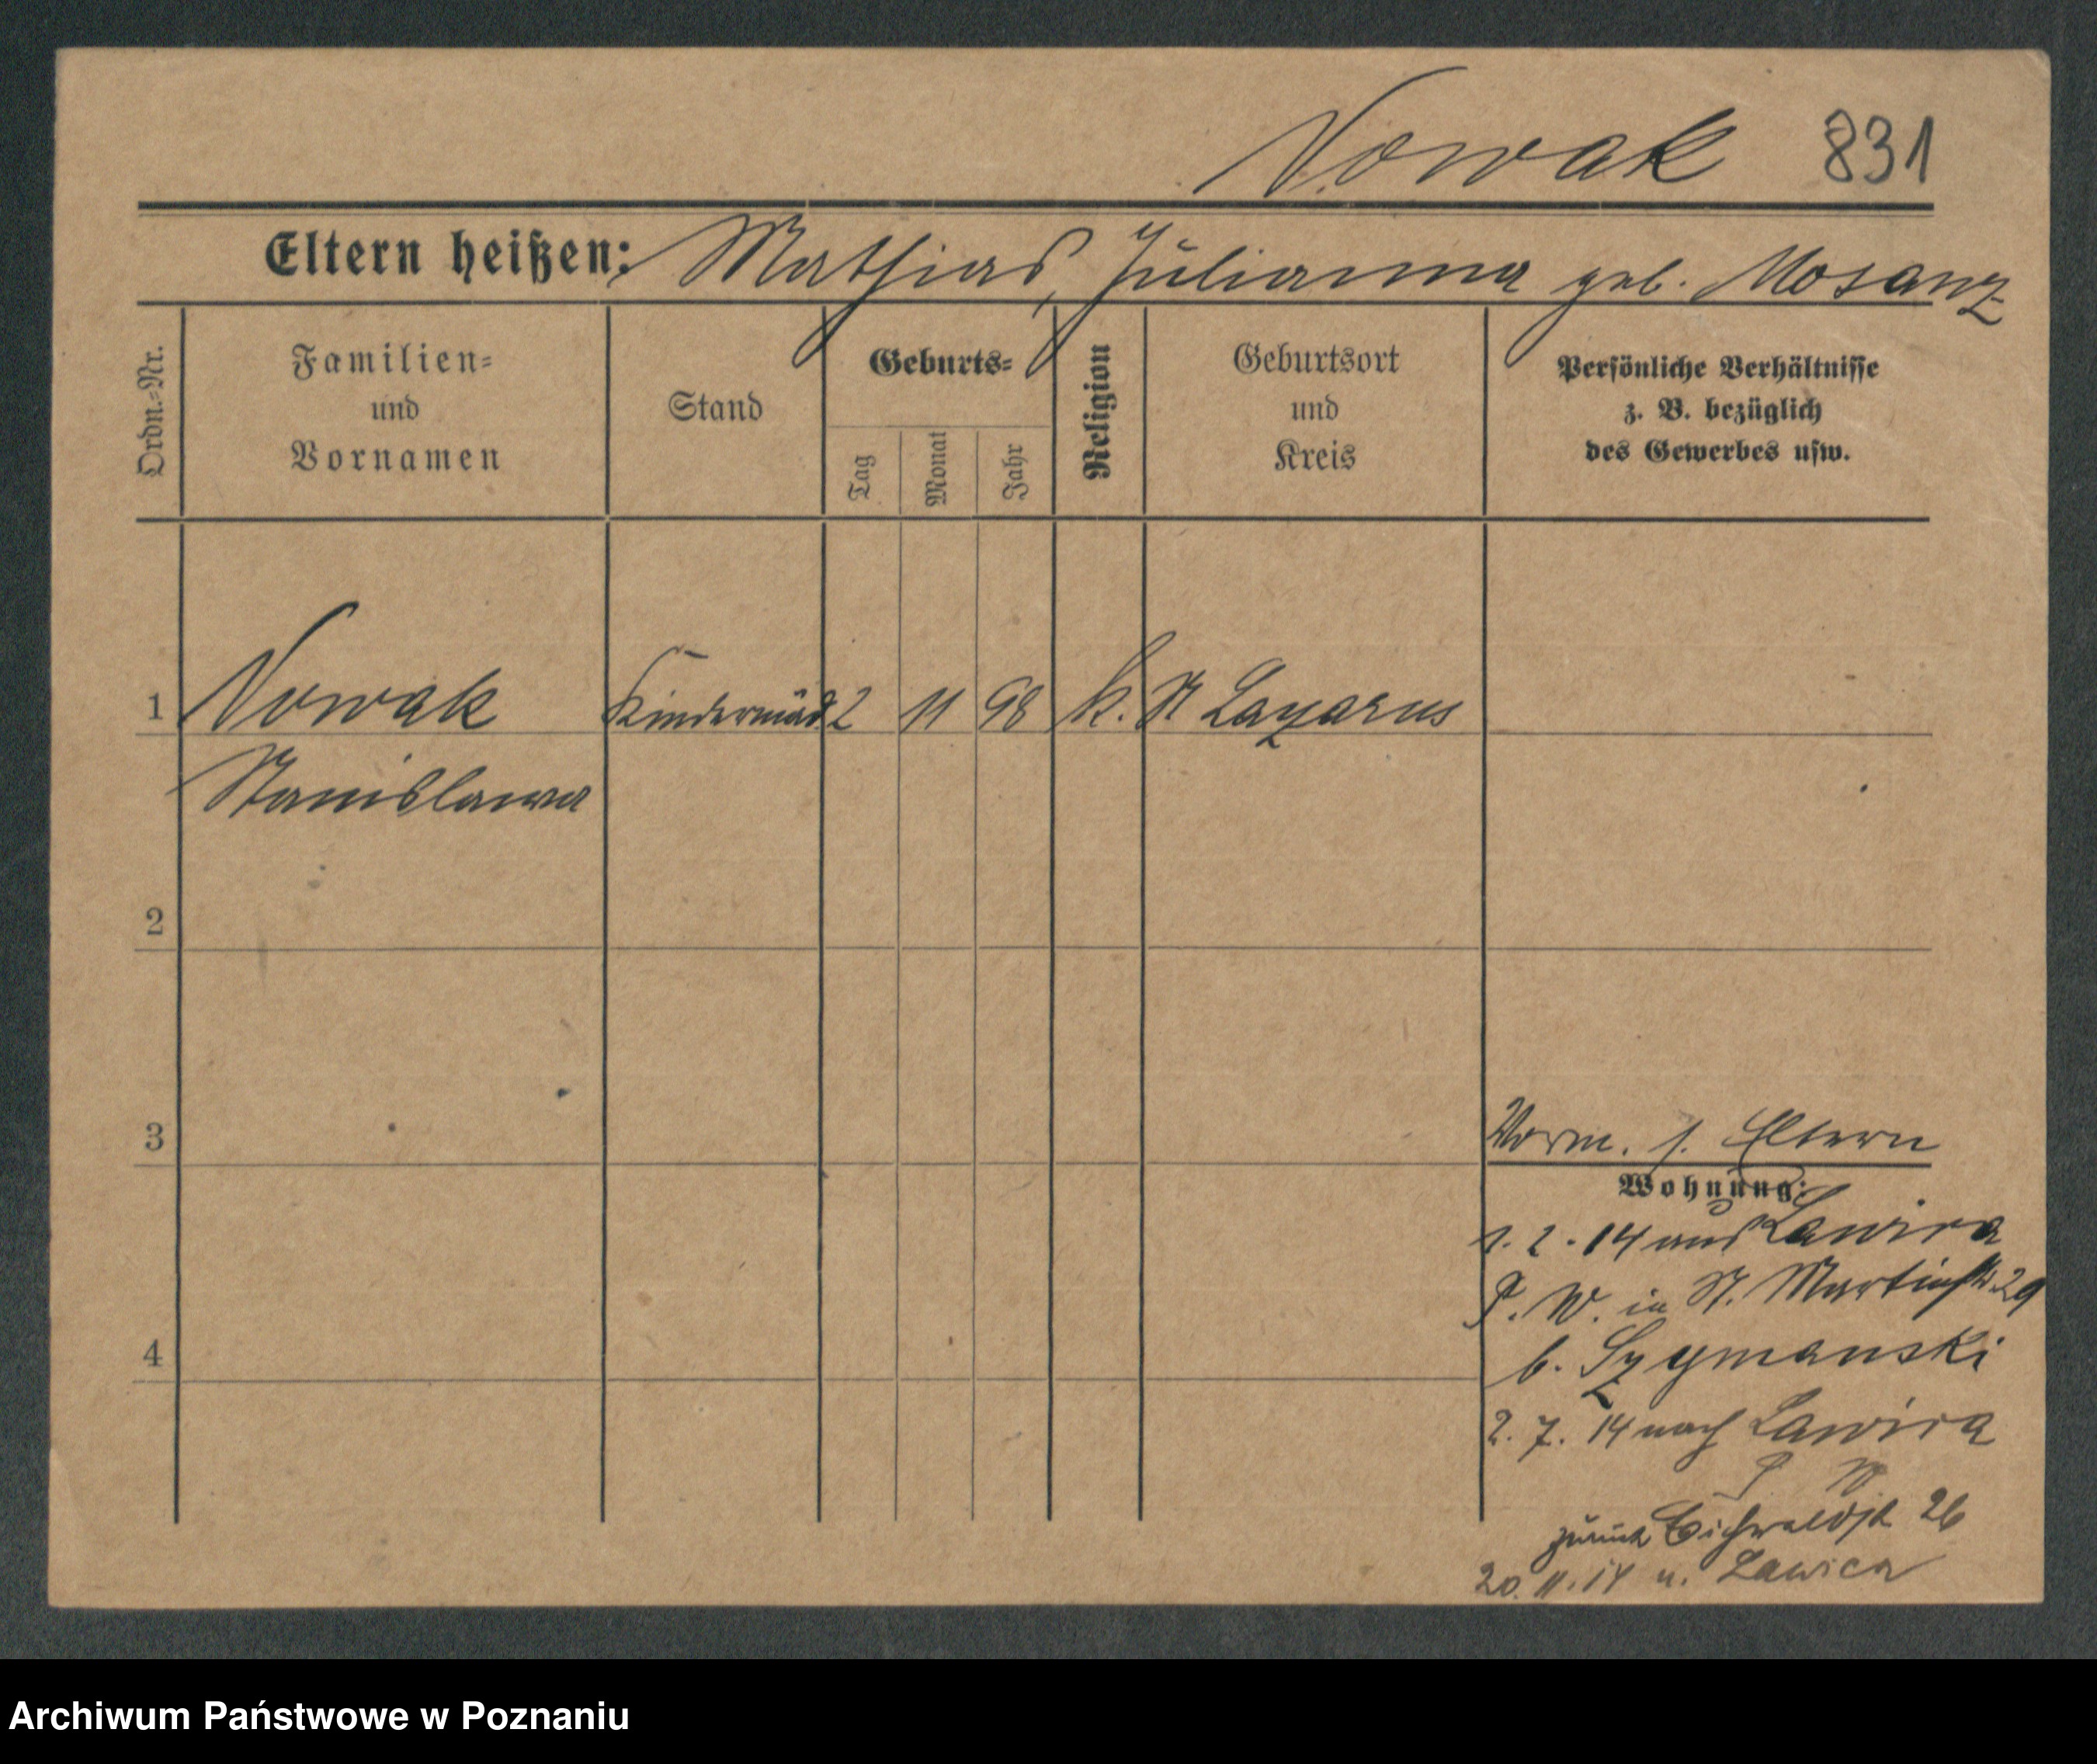 Nowak 831
Eltern heißen: Mathias, Julianna geb. Mosanz
Ordn.=Nr.
Familien=
und
Vornamen
Stand
Geburts=
Tag
Monat
Jahr
Religion
Geburtsort
und
Kreis
Persönliche Verhältnisse
z. B. bezüglich
des Gewerbes usw.
1 Nowak Kindermäd. 2 11 98 k. St Lazarus
Stanislawa
2
3
Vorm. s. Eltern
Wohnung:
4
1. 2. 14 aus Lawica
P. W. in St. Martinstr. 29
b. Szymanski
2. 7. 14 nach Lawica
P W
zurück Eichwaldstr 26
20. 11. 14 n. Lawica
Archiwum Państwowe w Poznaniu